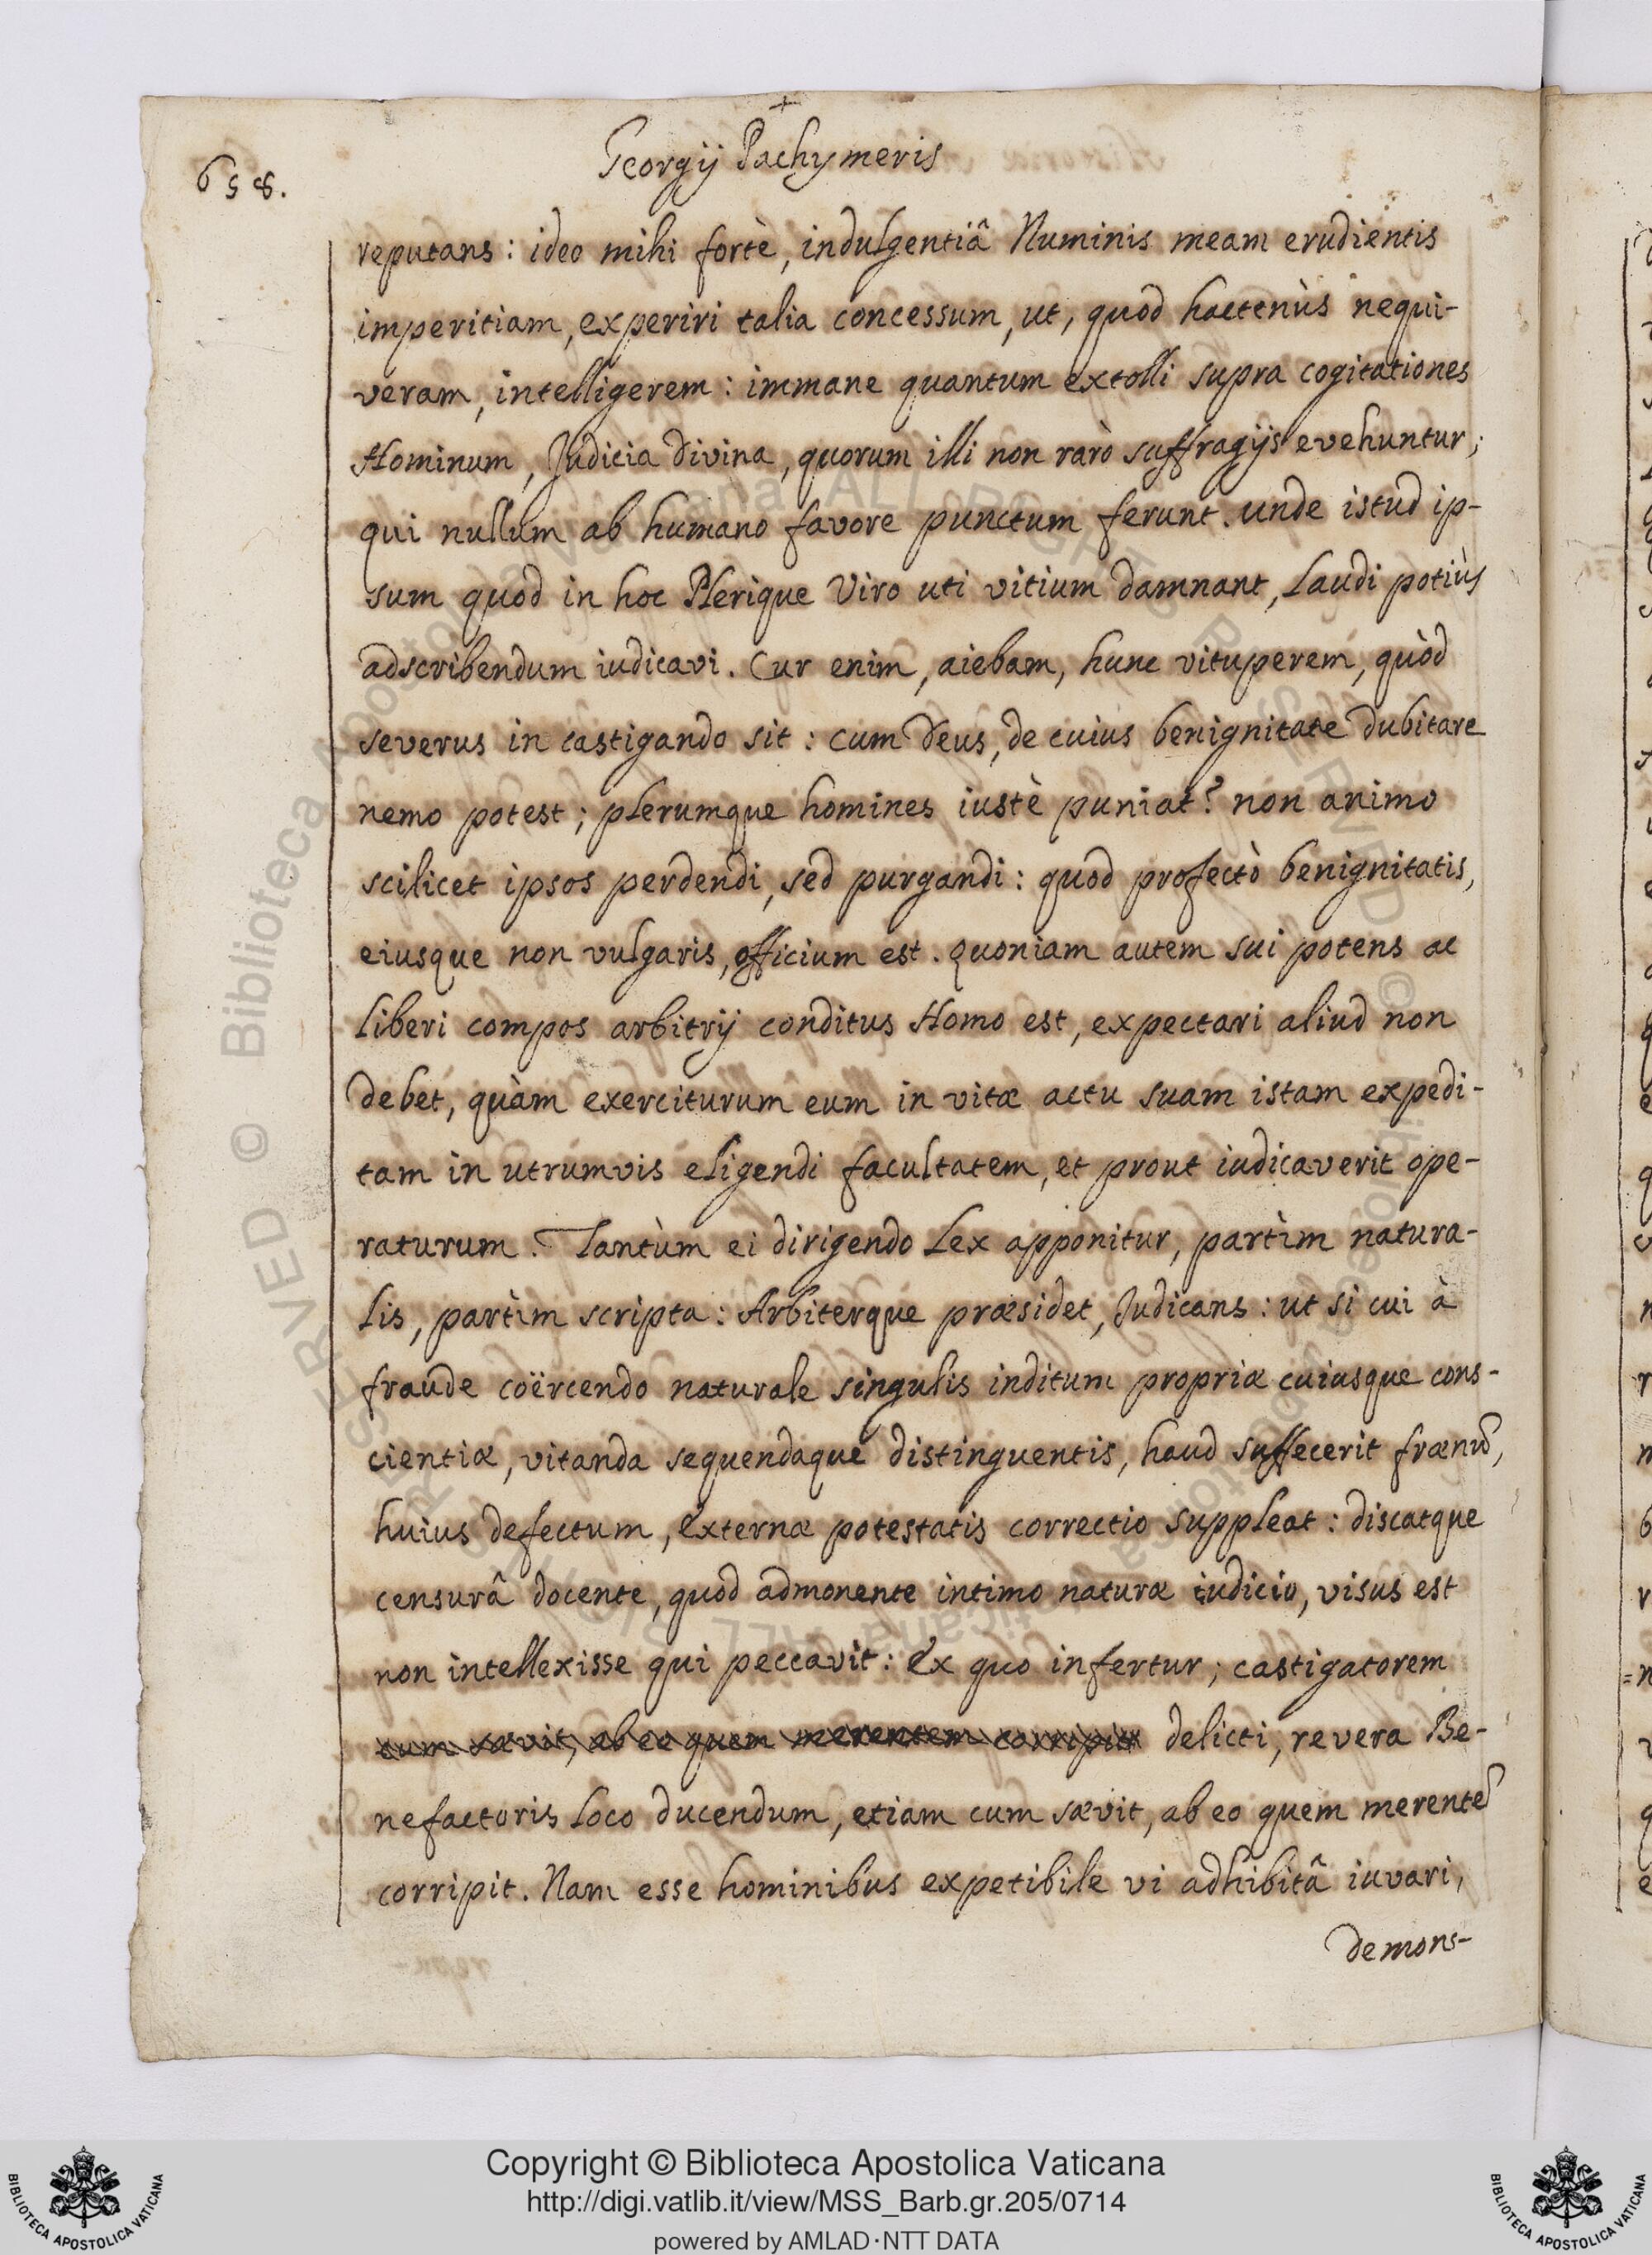 +
658.
Georgij Pachymeris
reputans: ideo mihi fortè, indulgentiâ Numinis meam erudientis
imperitiam, experiri talia concessum, ut, quod hactenùs nequi-
veram, intelligerem: immane quantum extolli supra cogitationes
Hominum, Judicia divina, quorum illi non rarò suffragijs evehuntur;
qui nullum ab humano favore punctum ferunt. unde istud ip-
sum quod in hoc Plerique Viro uti vitium damnant, Laudi potiùs
adscribendum iudicavi. Cur enim, aiebam, hunc vituperem, quòd
severus in castigando sit: cum Deus, de cuius benignitate dubitare
nemo potest; plerumque homines iustè puniat? non animo
scilicet ipsos perdendi, sed purgandi: quod profectò benignitatis,
eiusque non vulgaris, officium est. quoniam autem sui potens ac
Liberi compos arbitrij conditus Homo est, expectari aliud non
debet, quàm exerciturum eum in vitæ actu suam istam expedi-
tam in utrumvis eligendi facultatem, et prout iudicaverit ope-
raturum. Tantùm ei dirigendo Lex apponitur, partìm natura-
Lis, partìm scripta: Arbiterque præsidet, Judicans: ut si cui à
fraude coërcendo naturale singulis inditum propriæ cuiusque cons-
cientiæ, vitanda sequendaque distinguentis, haud suffecerit frænũ,
huius defectum, externæ potestatis correctio suppleat: discatque
censurâ docente, quod admonente intimo naturæ iudicio, visus est
non intellexisse qui peccavit: Ex quo infertur; castigatorem
cum sævit, ab eo quem merentem corripit delicti, revera Be-
nefactoris Loco ducendum, etiam cum sævit, ab eo quem merentẽ
corripit. Nam esse hominibus expetibile vi adhibitâ iuvari,
demons-
Copyright © Biblioteca Apostolica Vaticana
http://digi.vatlib.it/view/MSS_Barb.gr.205/0714
powered by AMLAD·NTT DATA
BIBLIOTECA APOSTOLICA VATICANA
BIBLIOTECA APOSTOLICA VATICANA